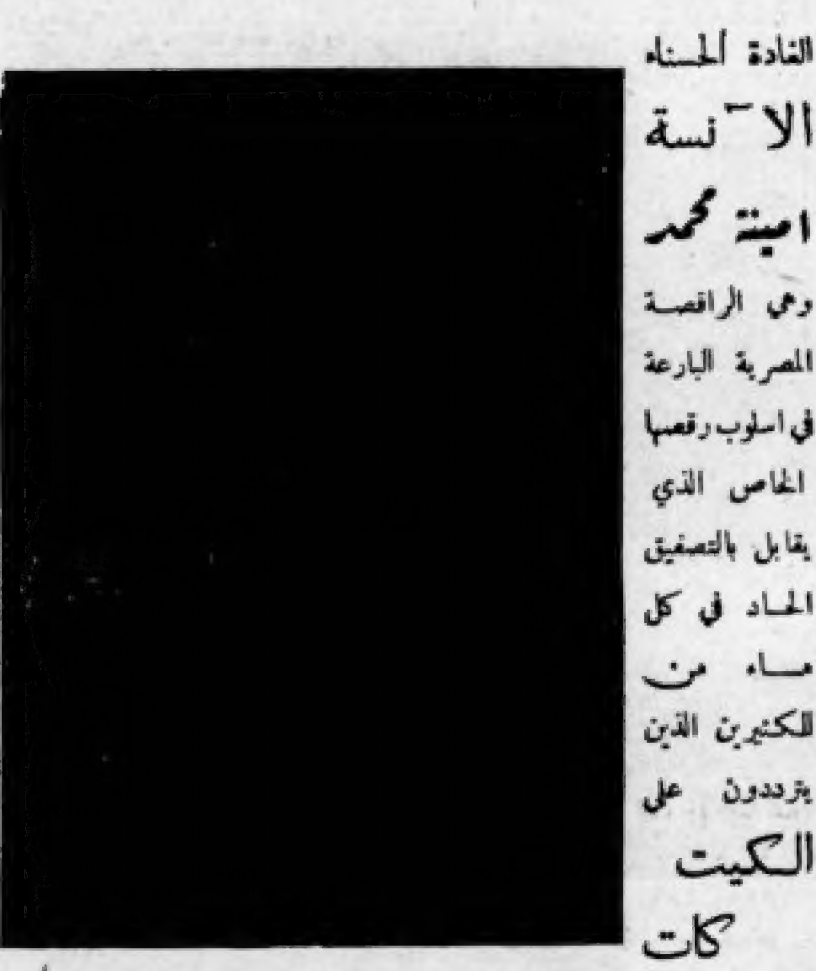 الغادة ألحسناء
الآنسة
امينة محمد
وهي الراقصة
المصرية البارعة
في اسلوب رقصها
الخاص الذي
يقابل بالتصفيق
الحاد في كل
مساء من
للكثيرين الذين
يترددون على
الكيت
كات